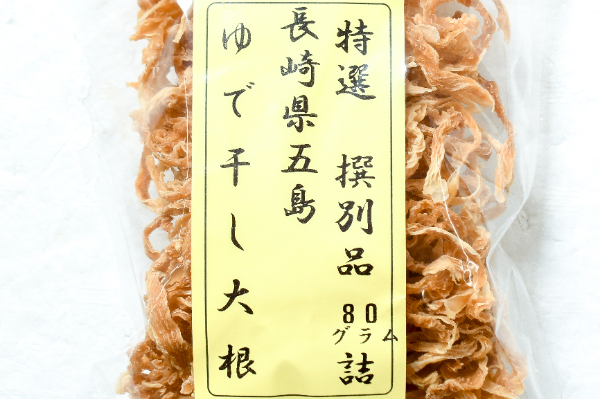 特選 撰別品 80グラム詰
長崎県五島
ゆで干し大根